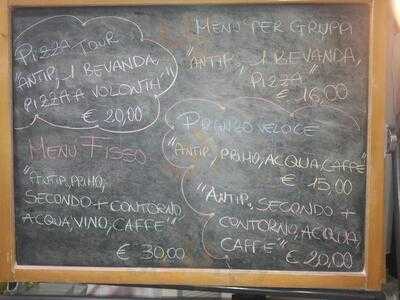 PIZZA TOUR
"ANTIP., 1 BEVANDA,
PIZZA A VOLONTA'"
€ 20,00
MENU PER GRUPPI
"ANTIP., 1 BEVANDA,
PIZZA"
€ 16,00
PRANZO VELOCE
"ANTIP., PRIMO, ACQUA, CAFFE'"
€ 15,00
"ANTIP., SECONDO +
CONTORNO, ACQUA,
CAFFE'"
€ 20,00
MENU FISSO
"ANTIP., PRIMO,
SECONDO + CONTORNO
ACQUA, VINO, CAFFE'"
€ 30,00